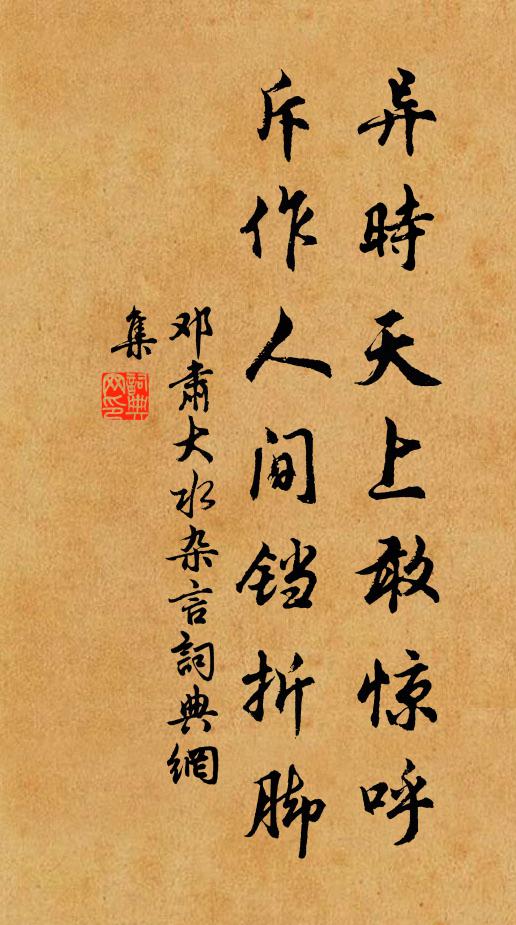 异時天上敢惊呼
斥作人间铛折脚
邓肃大水杂言詞典網
集
詞典
网印